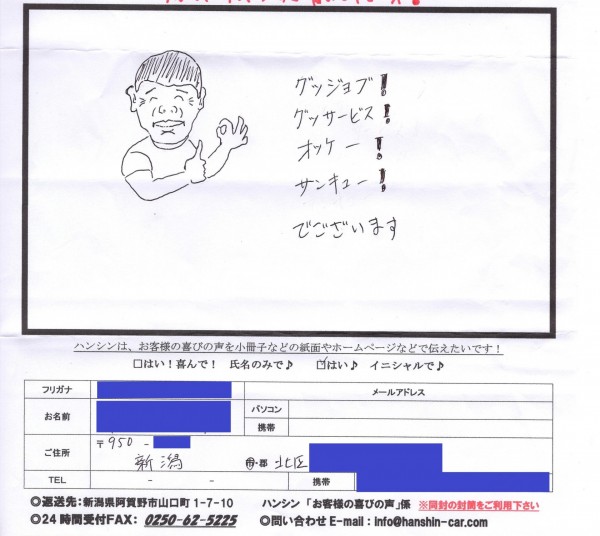 グッジョブ!
グッサービス!
オッケー!
サンキュー!
でございます
ハンシンは、お客様の喜びの声を小冊子などの紙面やホームページなどで伝えたいです!
□はい!喜んで! 氏名のみで♪ ☑はい♪ イニシャルで♪
フリガナ メールアドレス
お名前 パソコン
携帯
ご住所 〒950 -
新潟 市・郡 北区
TEL - - 携帯
◎返送先:新潟県阿賀野市山口町1-7-10 ハンシン「お客様の喜びの声」係 ※同封の封筒をご利用下さい
◎24時間受付FAX: 0250-62-5225 ◎問い合わせE-mail:info@hanshin-car.com